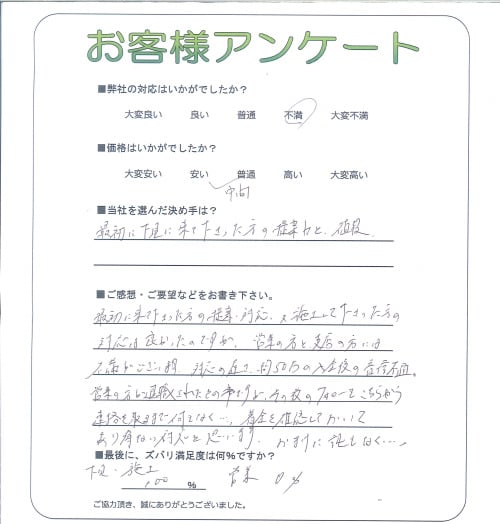 お客様アンケート
■弊社の対応はいかがでしたか？
大変良い 良い 普通 不満 大変不満
■価格はいかがでしたか？
大変安い 安い 普通 高い 大変高い
中間
■当社を選んだ決め手は？
最初に下見に来て下さった方の提案力と、値段
■ご感想・ご要望などをお書き下さい。
最初に来て下さった方の提案・対応、又施工して下さった方の
対応は良かったのですが、営業の方と支店の方には
不満がございます 対応の 、約50万の入金後の音信不通。
営業の方も退職されたとの事ですが、その後のフォローもこちらから
連絡を取るまで何もなく…、着金を確認しておいて
あり得ない対応と思います。
■最後に、ズバリ満足度は何％ですか？
下見・施工 営業 0%
100 %
ご協力頂き、誠にありがとうございました。